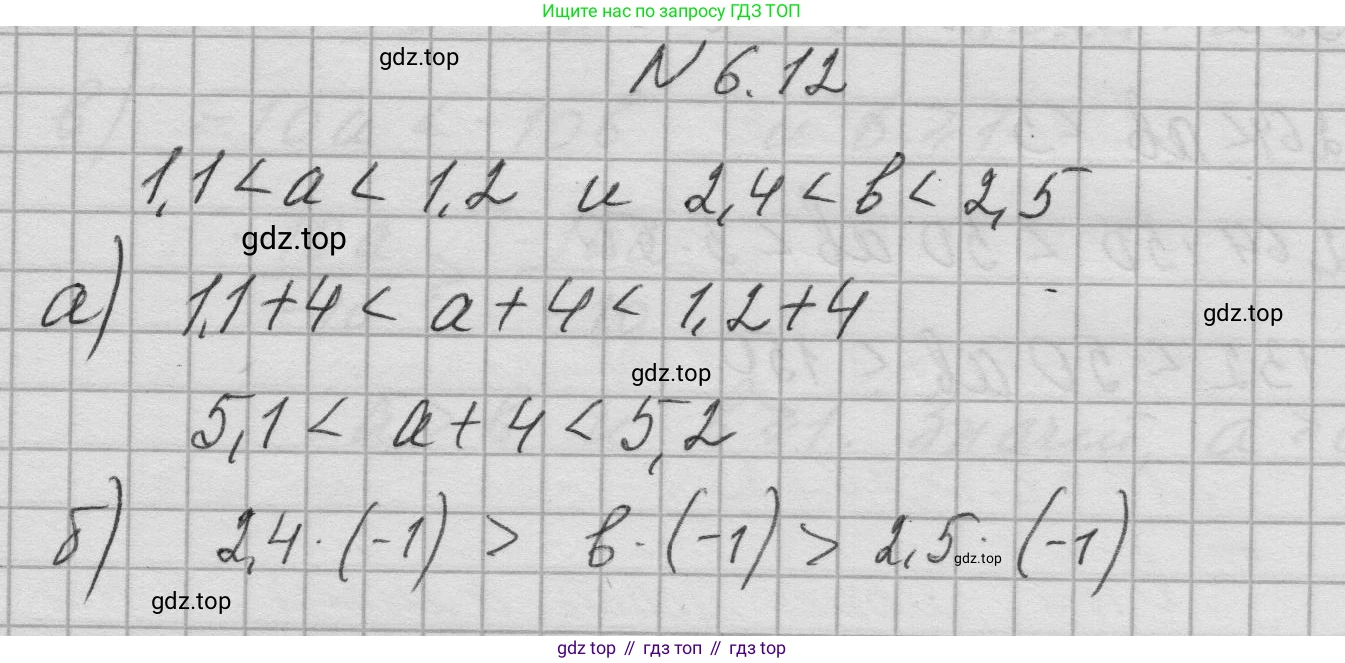 Ищите нас по запросу ГДЗ ТОП
gdz.top
N 6.12
1,1 < a < 1,2 и 2,4 < в < 2,5
gdz.top
а) 1,1+4 < a + 4 < 1,2+4
gdz.top
gdz.top
5,1 < a + 4 < 5,2
б) 2,4 · (-1) > в · (-1) > 2,5 · (-1)
gdz.top
gdz.top
gdz top // гдз топ // gdz top